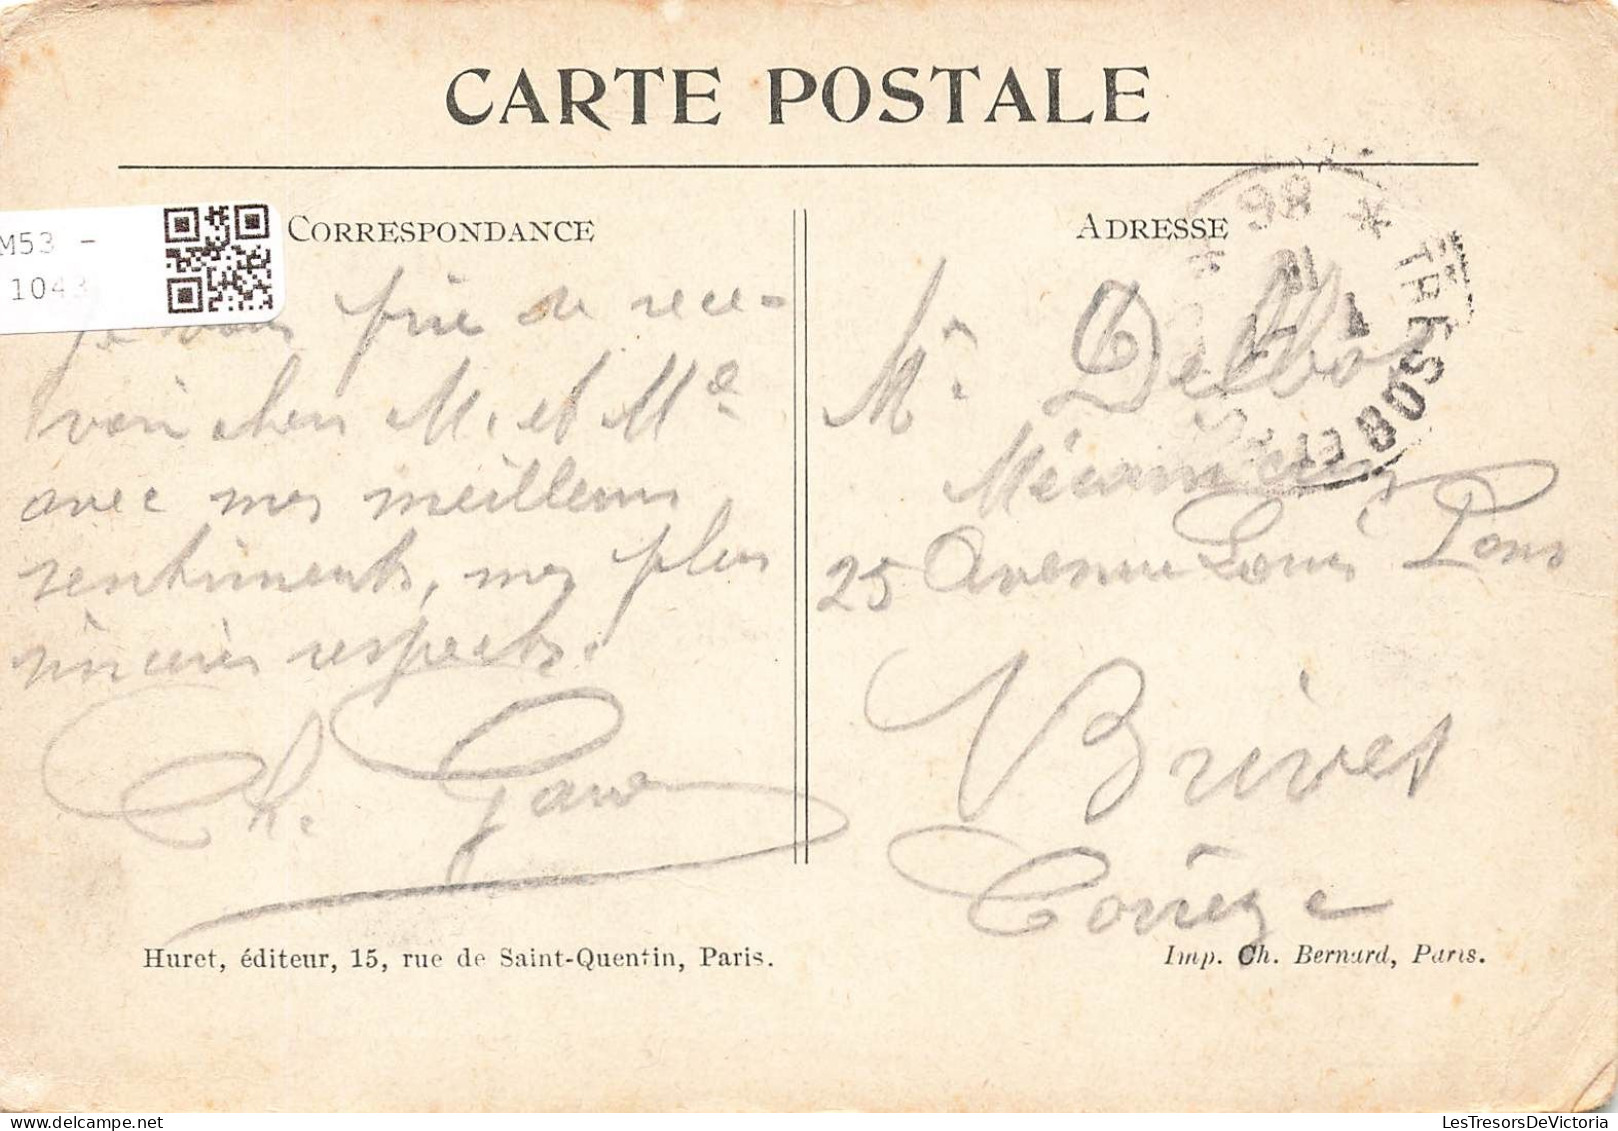 CARTE POSTALE
CORRESPONDANCE
M53 -
1043
Je vous prie de rece-
voir chers M. et Me
avec mes meilleurs
sentiments, mes plus
sincères respects.
Ch.
Huret, éditeur, 15, rue de Saint-Quentin, Paris.
ADRESSE
TRESOR ET POSTES * 98 *
Mr Delbos
Mécanicien
25 Avenue Louis Pons
Brives
Corrèze
Imp. Ch. Bernard, Paris.
LesTresorsDeVictoria